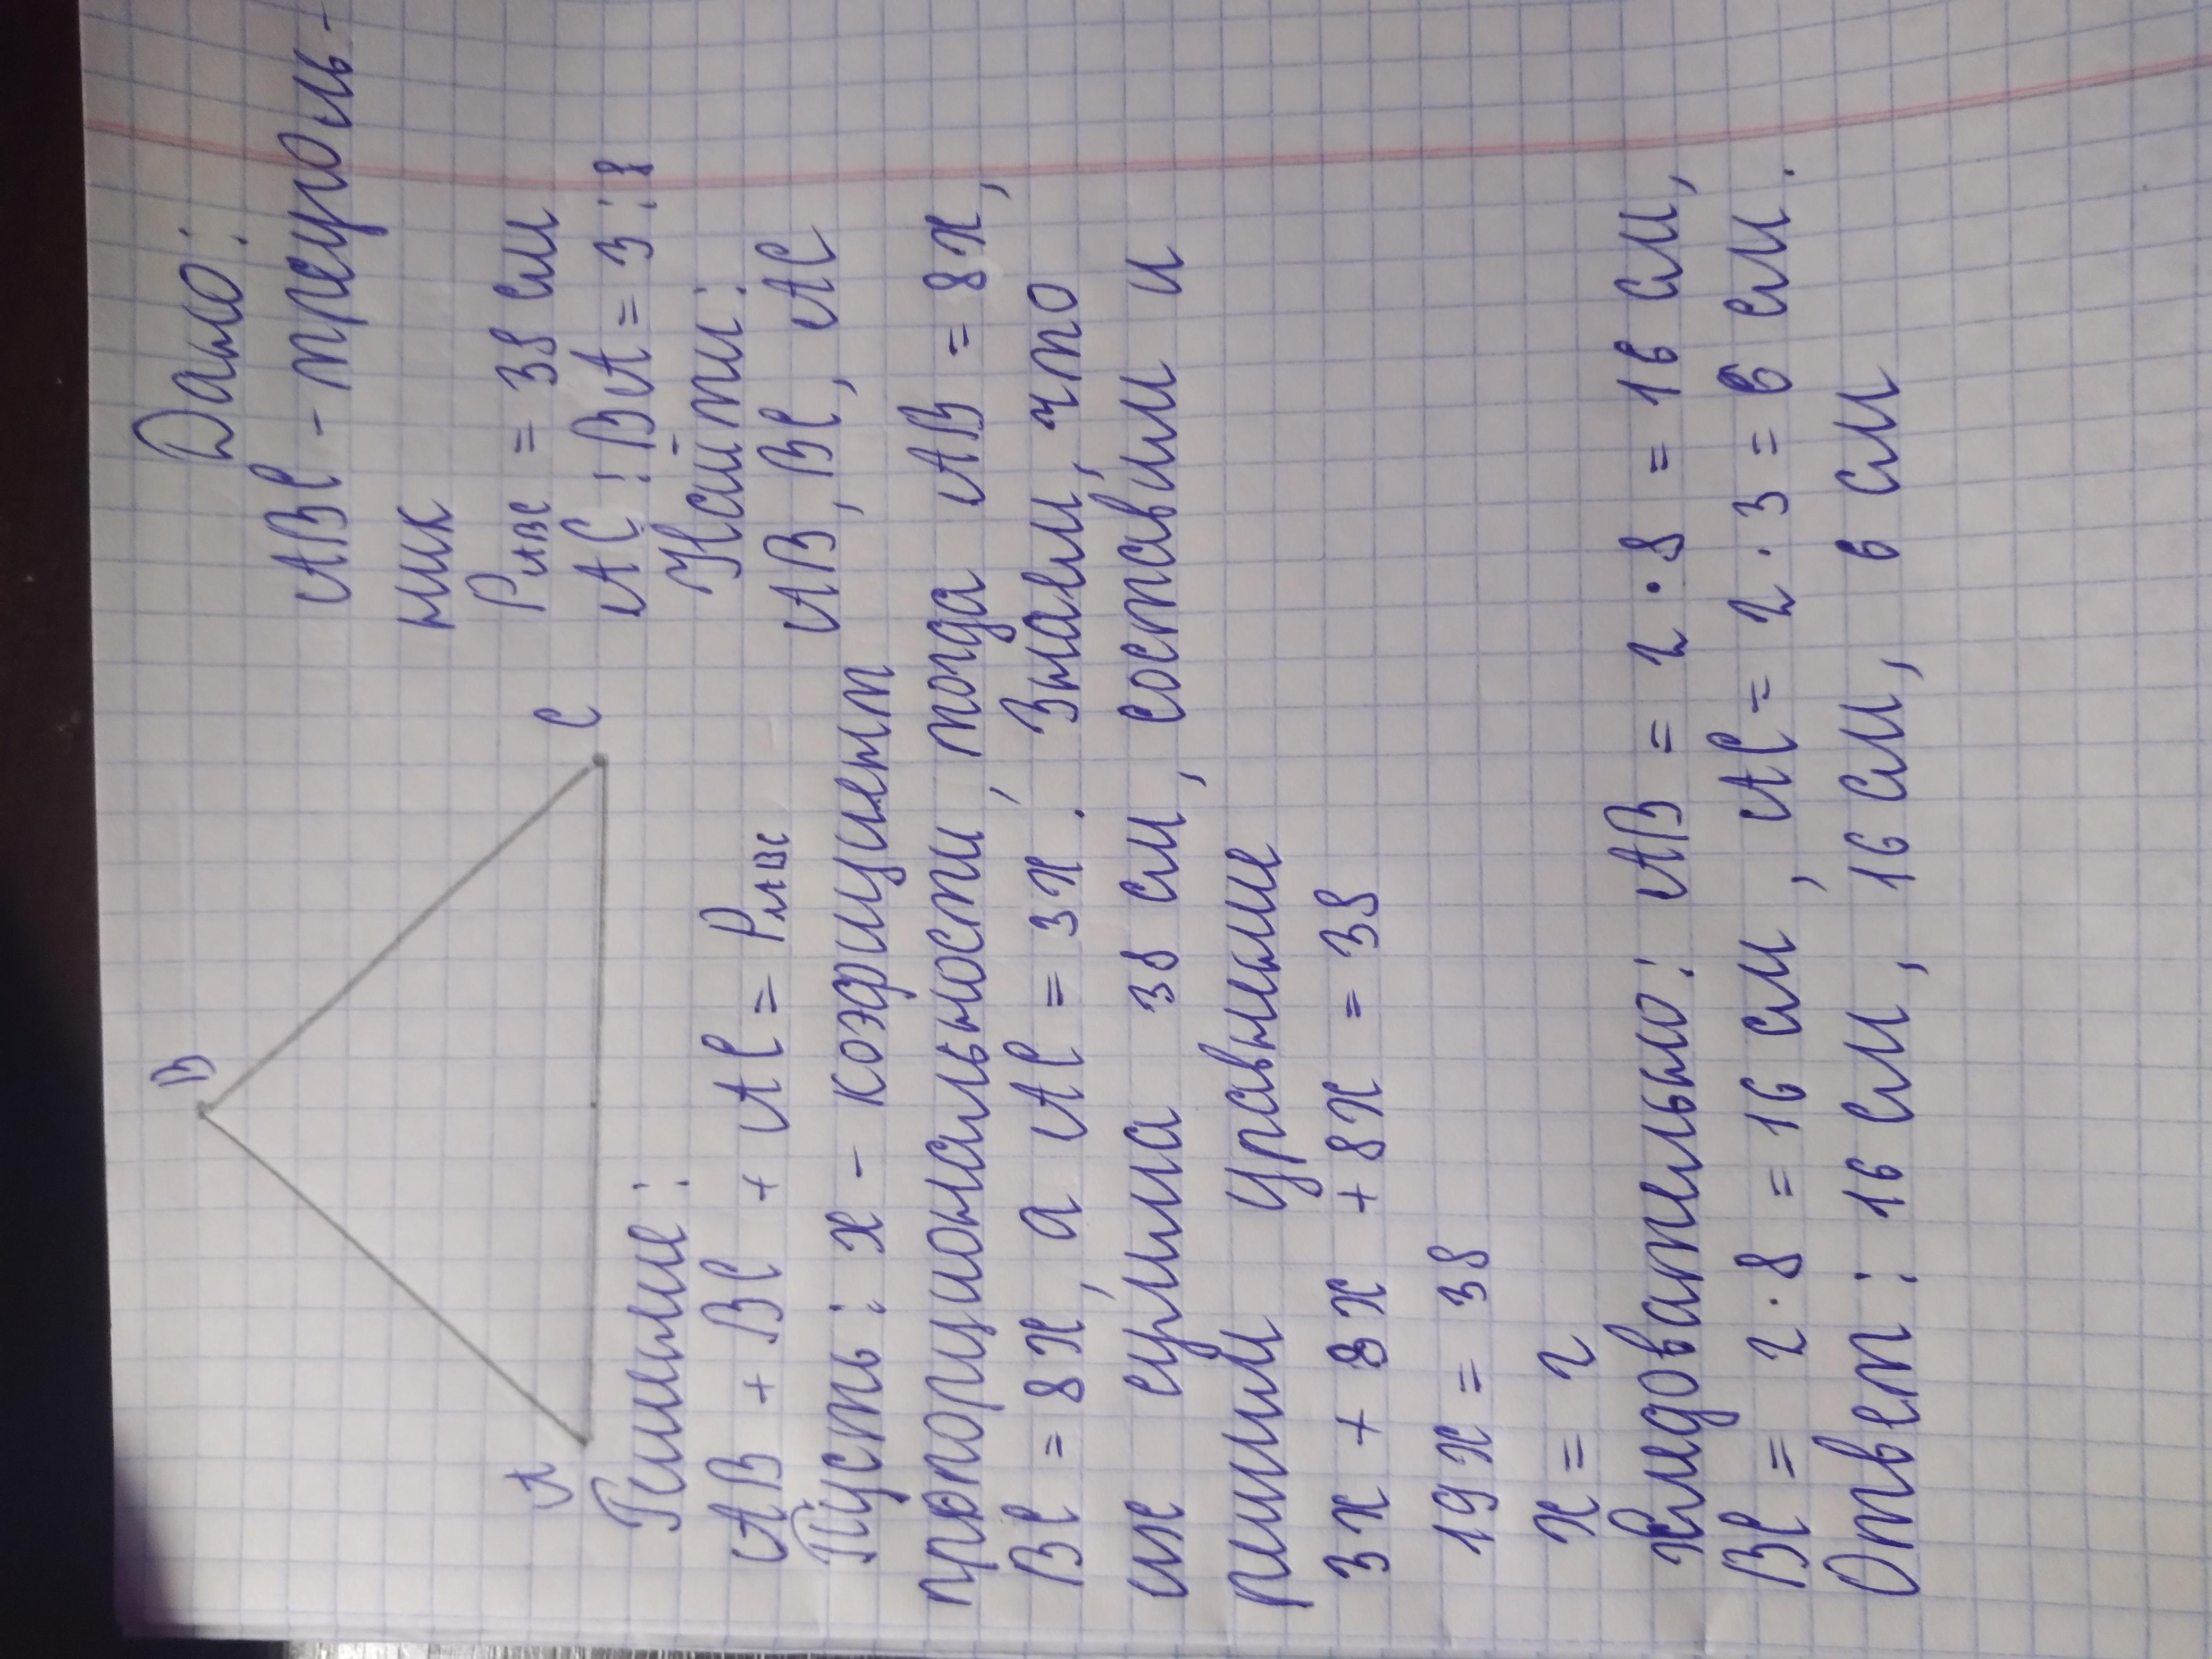 Дано:
ABC - треуголь-
ник
P ABC = 38 см
AC : BA = 3 : 8
Найти:
AB, BC, AC
B
A
C
Решение:
AB + BC + AC = P ABC
Пусть: x - коэфициент
пропорциональности, тогда AB = 8x,
BC = 8x, а AC = 3x. Знаем, что
их сумма 38 см, составим и
решим уравнение
3x + 8x + 8x = 38
19x = 38
x = 2
Следовательно: AB = 2 · 8 = 16 см,
BC = 2 · 8 = 16 см, AC = 2 · 3 = 6 см.
Ответ: 16 см, 16 см, 6 см